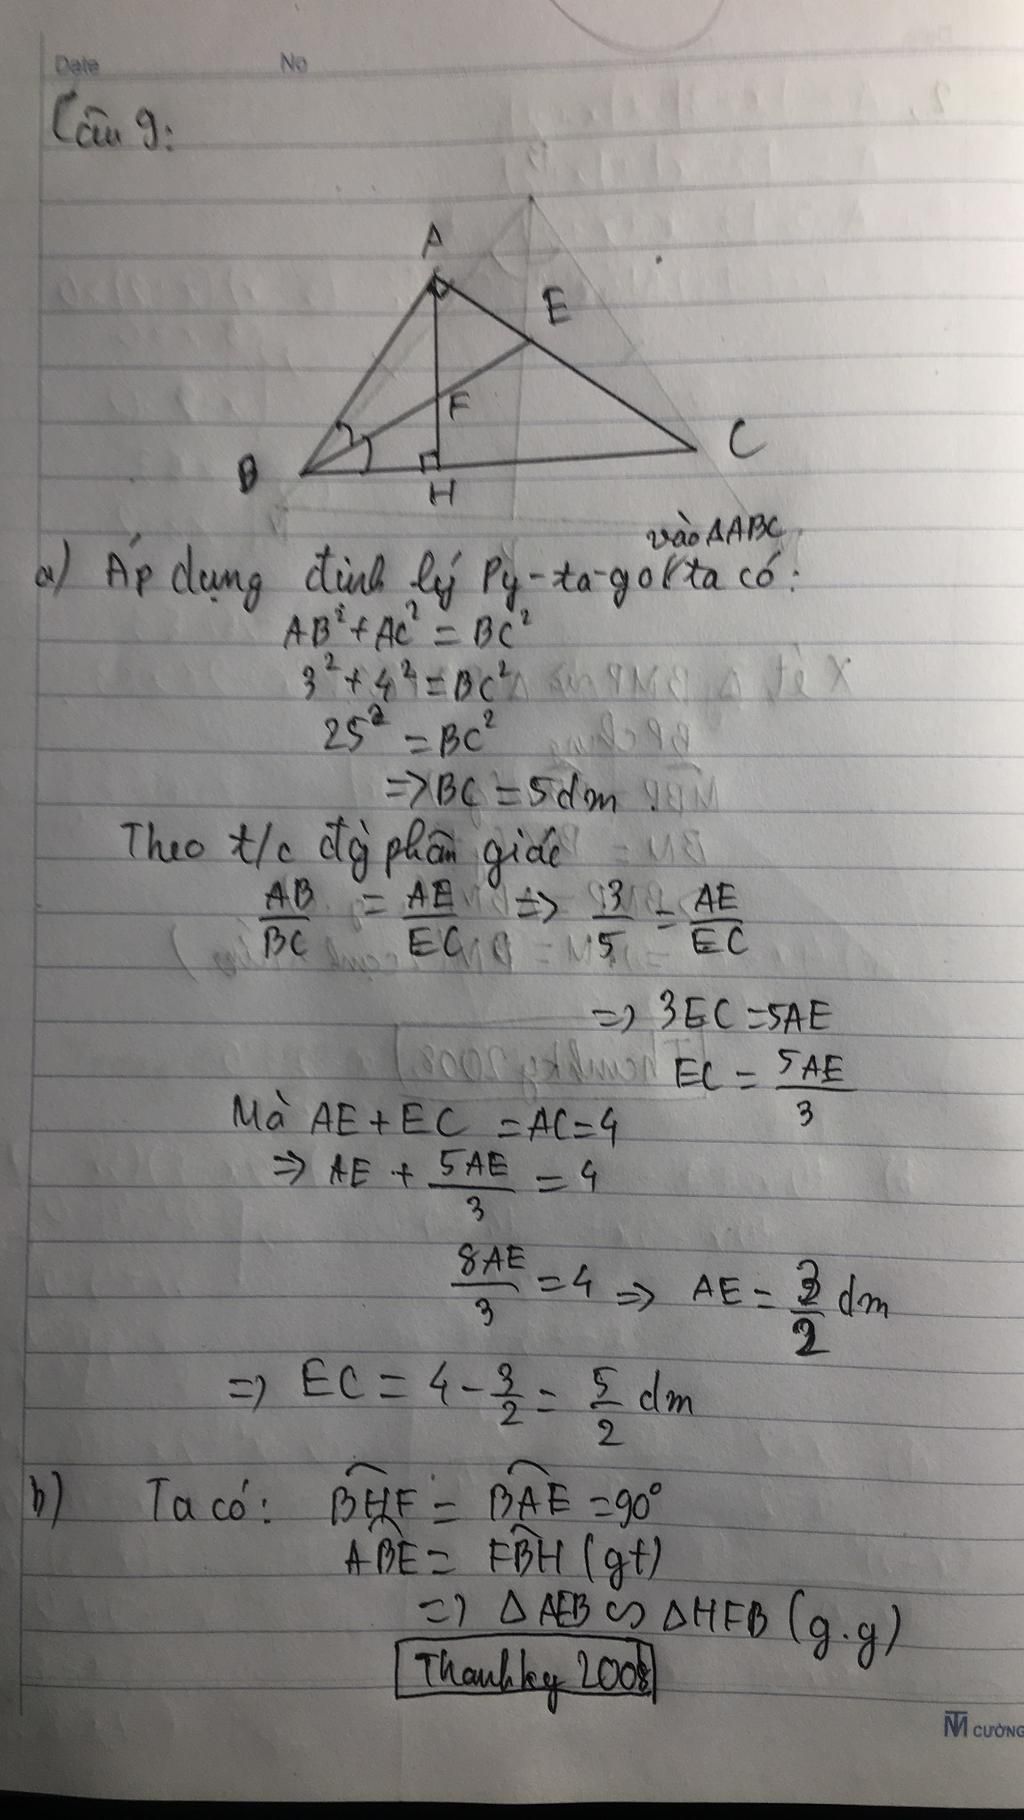 Date No
Câu 9:
A
E
F
B
H
C
vào ΔABC
a) Áp dụng định lý Py-ta-go ta có:
AB² + AC² = BC²
3² + 4² = BC²
25² = BC²
=> BC = 5 dm
Theo t/c đg phân giác
AB/BC = AE/EC => 3/5 = AE/EC
=> 3EC = 5AE
EC = 5AE/3
Mà AE + EC = AC = 4
=> AE + 5AE/3 = 4
8AE/3 = 4 => AE = 3/2 dm
=> EC = 4 - 3/2 = 5/2 dm
b) Ta có: BHF = BAE = 90°
ABE = FBH (gt)
=> Δ AEB ∽ ΔHFB (g.g)
Thanhky 2008
CƯỜNG